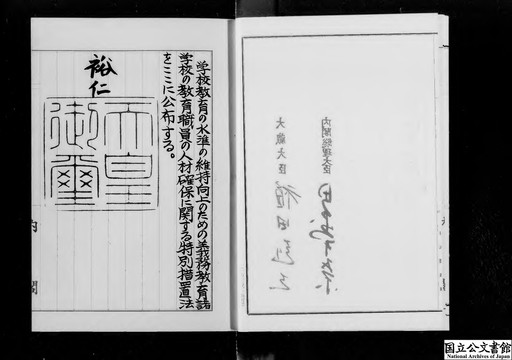 内閣総理大臣
大蔵大臣
学校教育の水準の維持向上のための義務教育諸
学校の教育職員の人材確保に関する特別措置法
をここに公布する。
裕仁
天皇
御璽
内閣
国立公文書館
National Archives of Japan